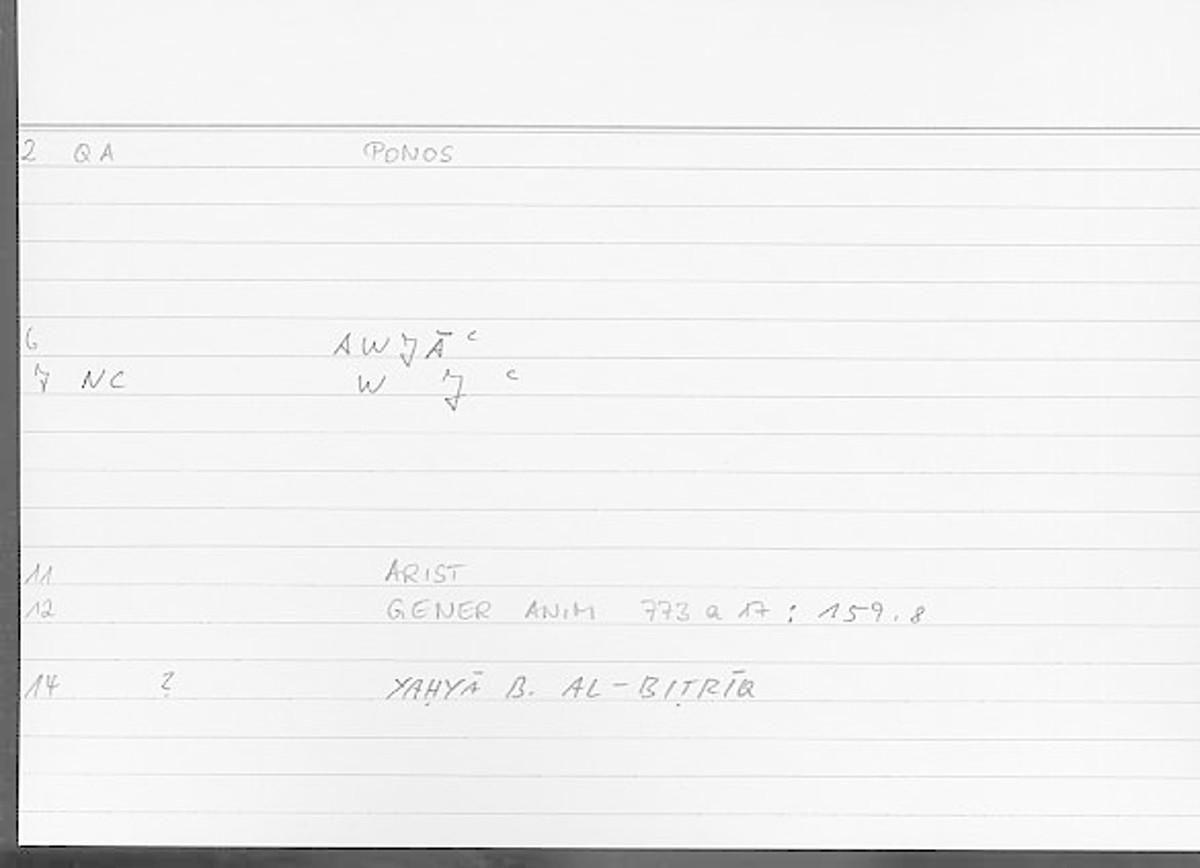 2 QA PONOS
6 AWJĀʿ
7 NC W J ʿ
11 ARIST
12 GENER ANIM 773 a 17 : 159.8
14 ? YAḤYĀ B. AL-BIṬRĪQ